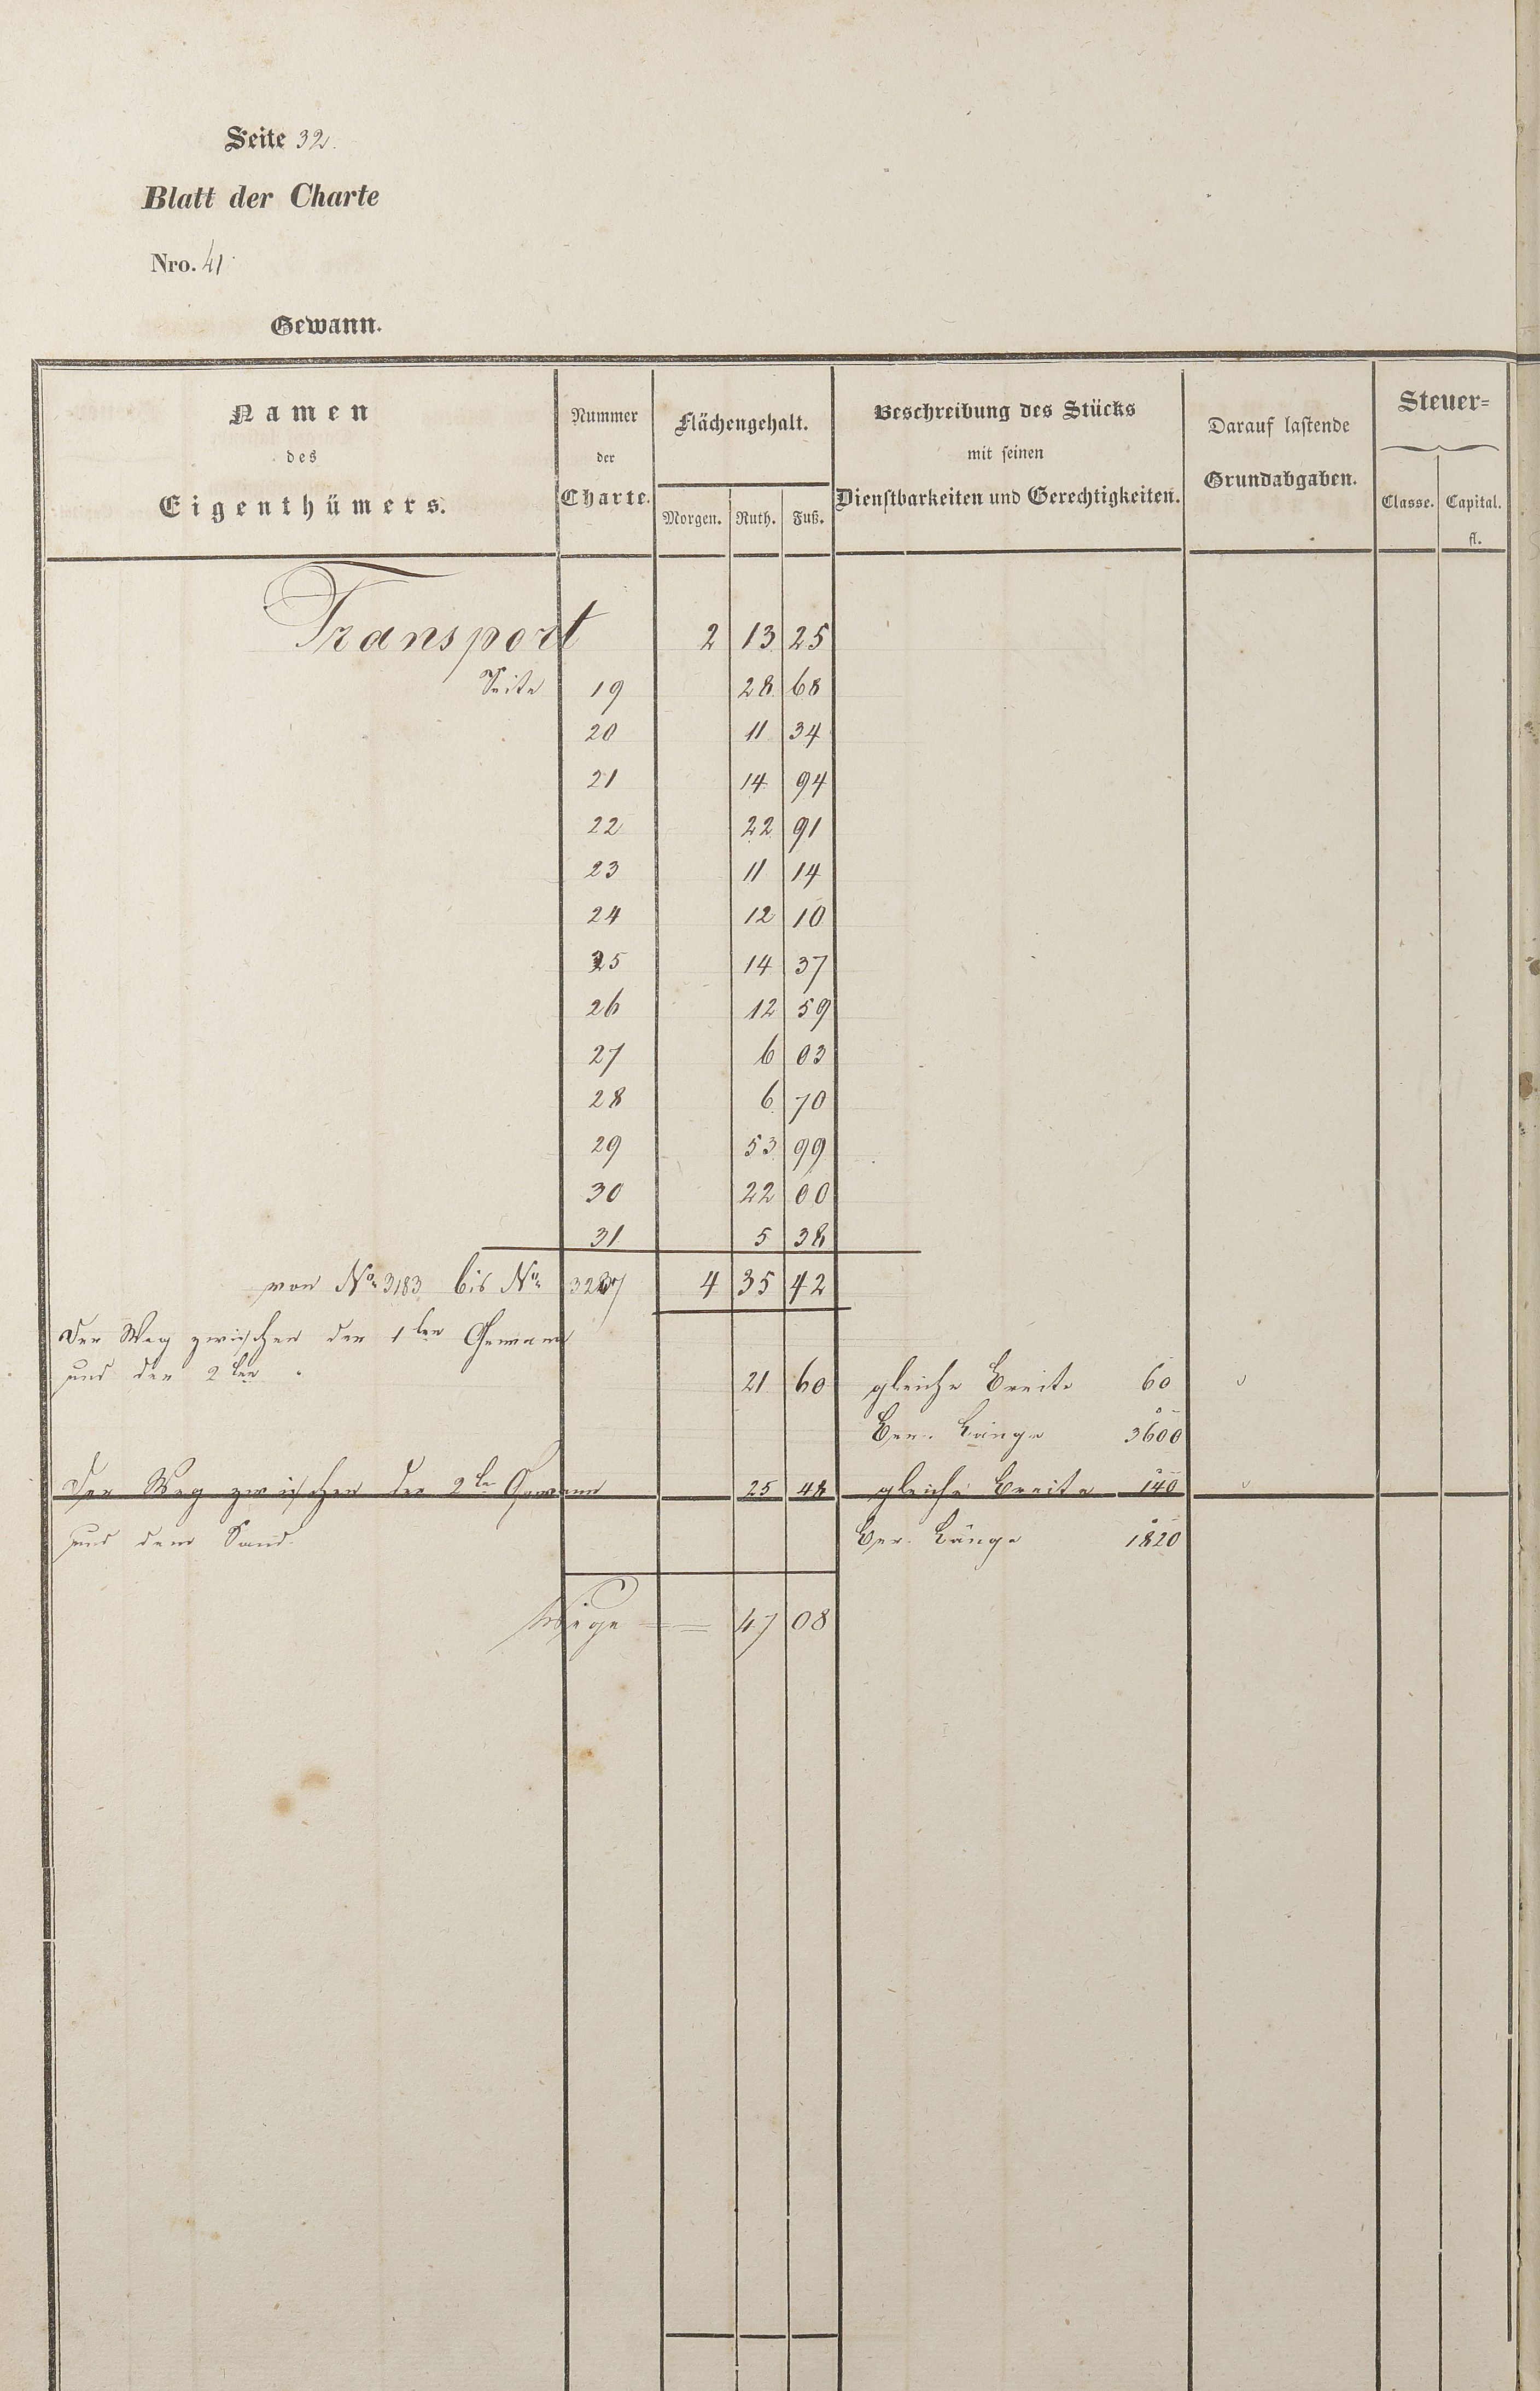 Seite 32.
Blatt der Charte
Nro. 41
Gewann.
Namen des Eigenthümers.
Nummer der Charte.
Flächengehalt.
Morgen. Ruth. Fuß.
Beschreibung des Stücks mit seinen Dienstbarkeiten und Gerechtigkeiten.
Darauf lastende Grundabgaben.
Steuer=
Classe. Capital. fl.
Transport 2 13 25
Seite 19 28 68
20 11 34
21 14 94
22 22 91
23 11 14
24 12 10
25 14 37
26 12 59
27 6 03
28 6 70
29 53 99
30 22 00
31 5 38
von No. 3183 bis No. 4 35 42
Der Weg zwischen der 1ten Gewann
und der 2ten " 21 60 gleiche Breite 60
Ber. Länge 3600
Der Weg zwischen der 2te Gewann 25 48 gleiche Breite 140
und dem Sand. Ber. Länge 1820
Wege == 47 08